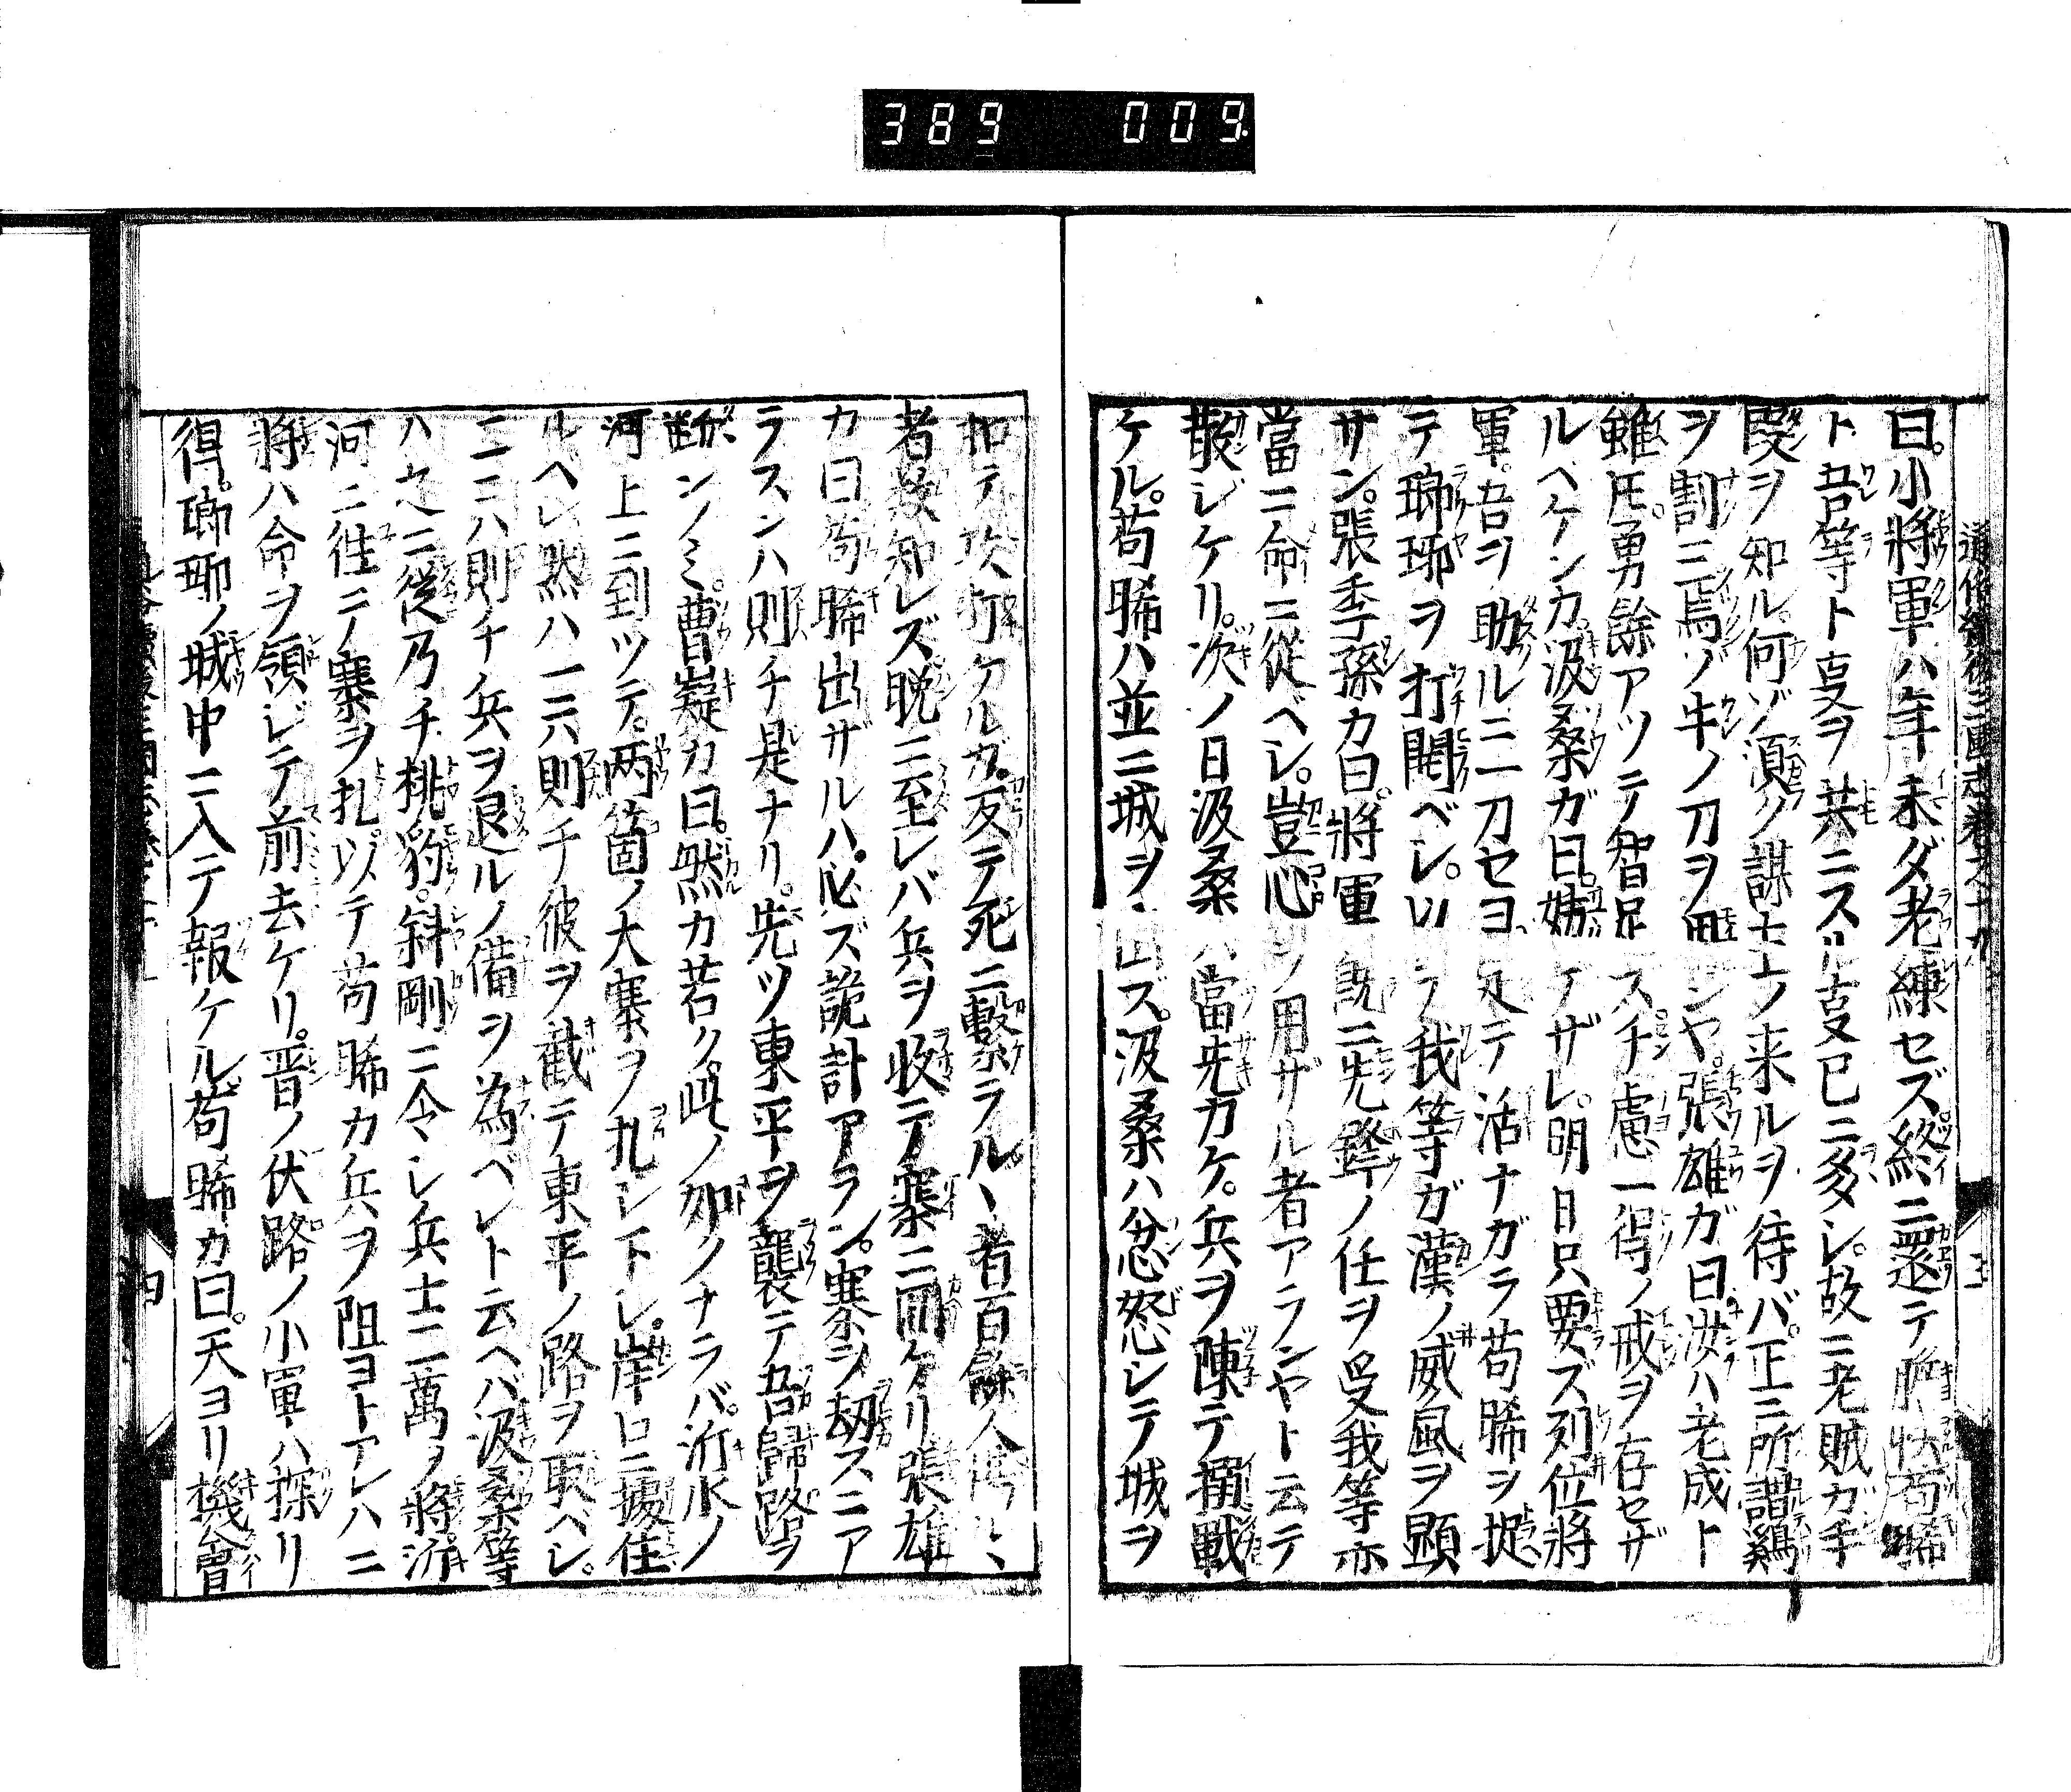 389 009
曰。小將軍ハ年未ダ老練セズ終ニ還テ苟晞
ト吾等ト亊ヲ共ニスル亊已ニ多シ。故ニ老賊ガ手
段ヲ知ル。何ゾ須ク謀士ノ来ルヲ待バ。正ニ所謂鷄
ヲ割ニ焉ゾ牛ノ刀ヲ用ンヤ。張雄ガ曰汝ハ老成ト
雖𪜈。勇餘アツテ智足ス千慮一得ノ戒ヲ存セザ
ルヘケンカ。汲桑ガ曰。嫌ザレ。明日只要ズ列位將
軍。吾ヲ助ルニ一刀セヨ足テ活ナガラ苟晞ヲ捉
テ瑯琊ヲ打開ベシ。以テ我等ガ漢ノ威風ヲ顕
サン。張季孫カ曰。將軍既ニ先鋒ノ任ヲ受我等亦
當ニ命ニ從ベシ。豈心ヲ用ザル者アランヤト云テ
散ジケリ。次ノ日汲桑ハ當先カケ。兵ヲ陳テ搦戰
ケル。苟晞ハ並ニ城ヲ出ズ。汲桑ハ忿怒シテ城ヲ
扣テ攻打ケルガ。反テ死ニ繋ラルヽ者百餘人
者數知レズ晩ニ至レバ兵ヲ收テ寨ニ囬ケリ張雄
カ曰苟晞出ザルハ。必ズ詭計アラン。寨ヲ刧スニア
ラスンハ則チ是ナリ。先ツ東平ヲ襲テ吾歸路ヲ
斷ンノミ。曹嶷カ曰。然カ若ク。此ノ如クナラバ。沂水ノ
河上ニ到ツテ。両箇ノ大寨ヲ扎シ下シ。岸口ニ據住
ルヘシ然ハ一ニハ則チ彼ヲ截テ東平ノ路ヲ取ヘシ。
二ニハ則チ兵ヲ退ルノ備ヲ為ベシト云ヘバ汲桑等
ハ之ニ從乃チ。桃豹。斜剛ニ令シ兵士二萬ヲ將沂
河ニ徃ニノ寨ヲ扎。以テ苟晞カ兵ヲ阻ヨトアレハ二
將ハ命ヲ領ジテ前去ケリ。晋ノ伏路ノ小軍ハ探リ
得。瑯琊ノ城中ニ入テ報ケル苟晞カ曰。天ヨリ機會